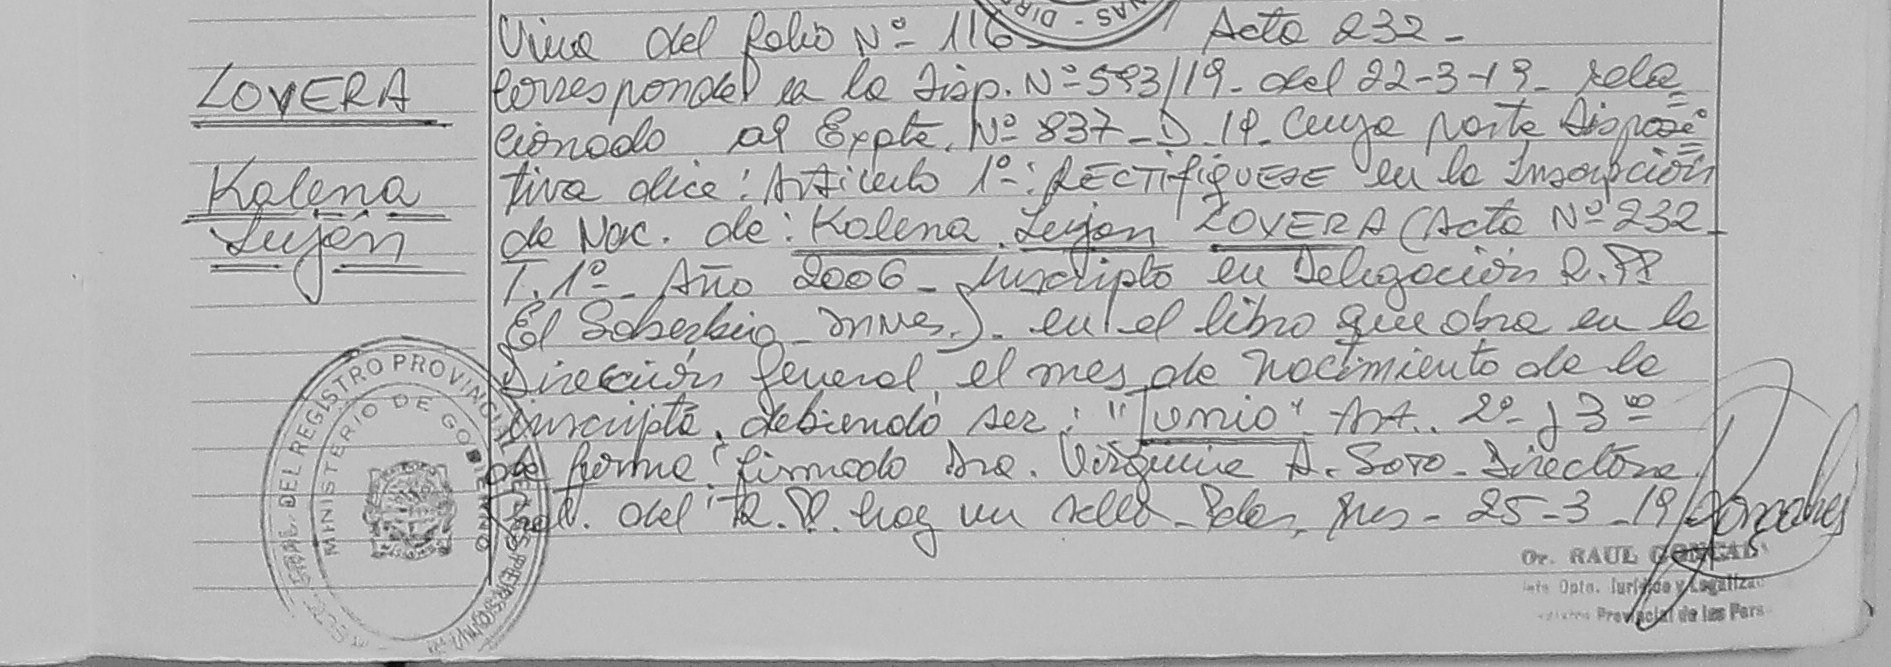 Viene del folio Nº 116 Acta 232-
LOVERA
Corresponde a la Disp. Nº 593/19- del 22-3-19- rela=
cionado al Expte. Nº 837-D-19- Cuya parte Disposi=
Kalena
tiva dice: Artículo 1º-: RECTIFIQUESE en la Inscripción
Luján
de Nac. de: Kalena Luján LOVERA (Acta Nº 232-
T. 1º- Año 2006- Inscripta en Delegación R.PP
El Soberbio- Mnes.)- en el libro que obra en la
Dirección General el mes de nacimiento de la
inscripta, debiendo ser: "Junio" Art. 2º- y 3º
de forma. firmado Dra. Virginia A. Soto- Directora
Gral. del R.P. hay un sello- Pdas, Mnes- 25-3-19
DIRECC. GRAL. DEL REGISTRO PROVINCIAL DE LAS PERSONAS
MINISTERIO DE GOBIERNO
Dr. RAUL GONCAL
Jefe Dpto. Jurídico y Legaliza
Provincial de las Pers